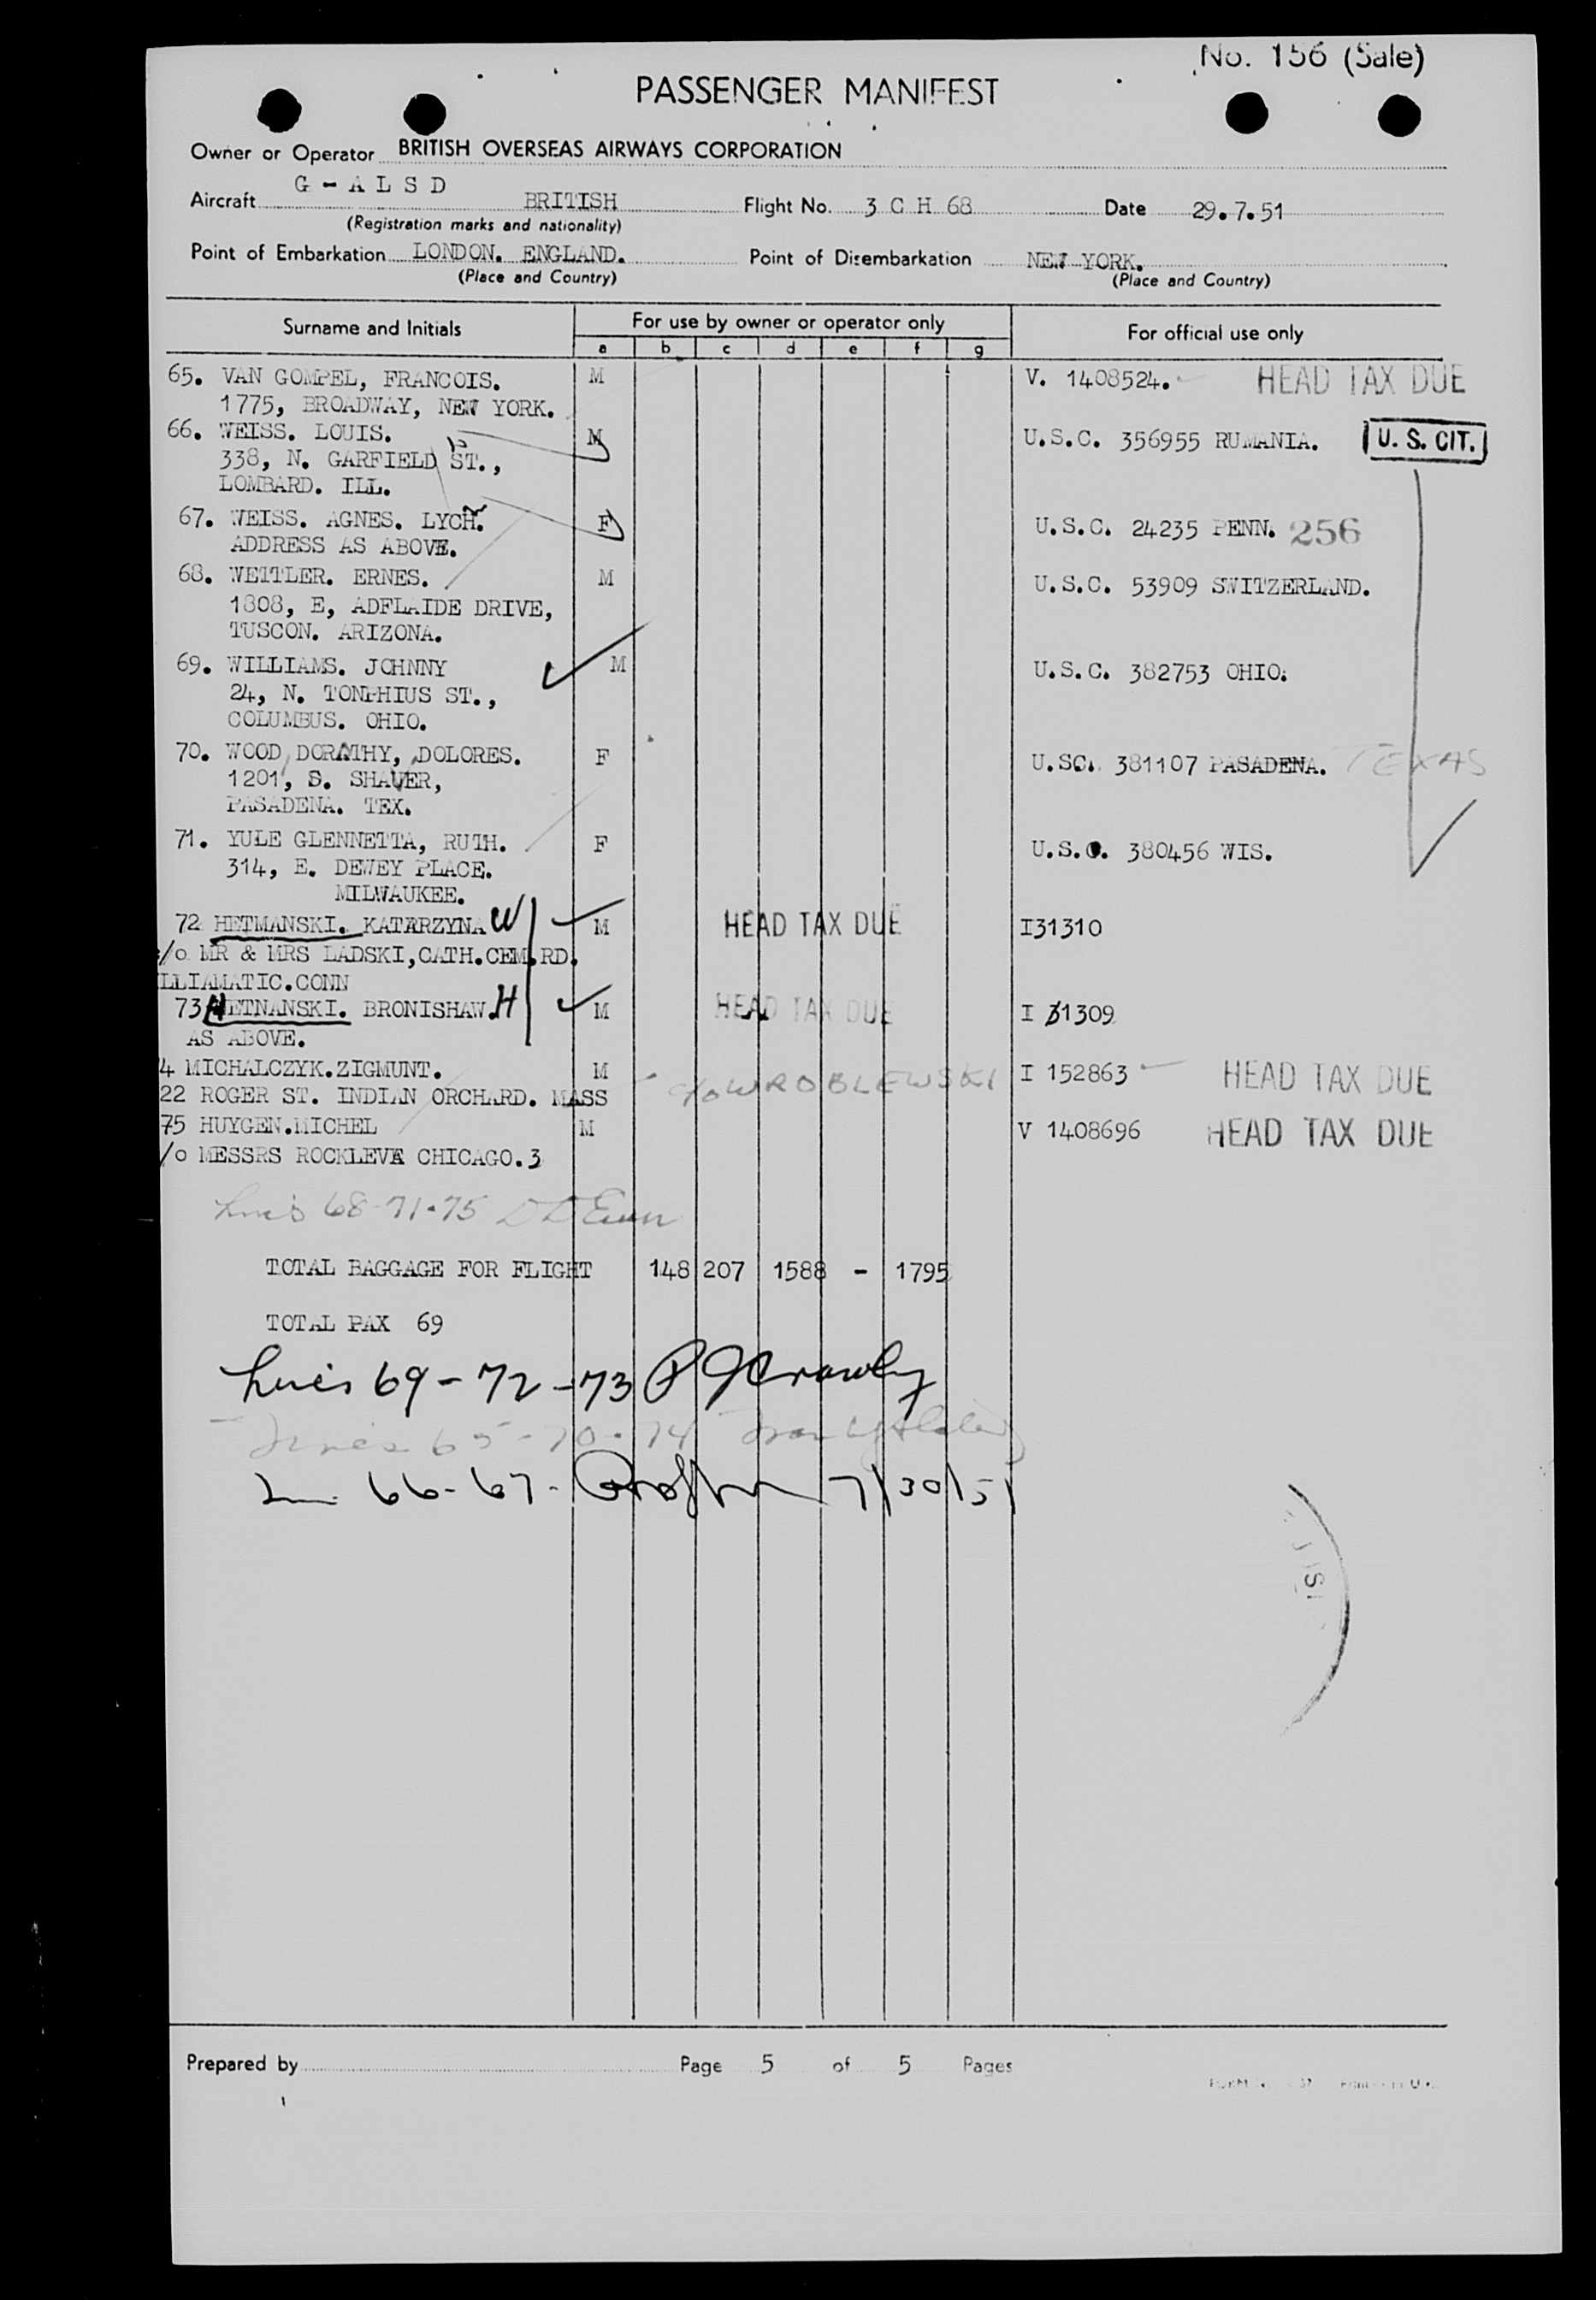 No. 156 (Sale)
PASSENGER MANIFEST
Owner or Operator BRITISH OVERSEAS AIRWAYS CORPORATION
Aircraft G - A L S D BRITISH Flight No. 3 C H 68 Date 29.7.51
(Registration marks and nationality)
Point of Embarkation LONDON. ENGLAND. Point of Disembarkation NEW YORK.
(Place and Country) (Place and Country)
Surname and Initials For use by owner or operator only For official use only
a b c d e f g
65. VAN GOMPEL, FRANCOIS. M V. 1408524. HEAD TAX DUE
1775, BROADWAY, NEW YORK.
66. WEISS. LOUIS. M U.S.C. 356955 RUMANIA. U. S. CIT.
338, N. GARFIELD ST.,
LOMBARD. ILL.
67. WEISS. AGNES. LYCH. F U.S.C. 24235 PENN. 256
ADDRESS AS ABOVE.
68. WEITLER. ERNES. M U.S.C. 53909 SWITZERLAND.
1808, E, ADFLAIDE DRIVE,
TUSCON. ARIZONA.
69. WILLIAMS. JOHNNY M U.S.C. 382753 OHIO.
24, N. TONPHIUS ST.,
COLUMBUS. OHIO.
70. WOOD, DORATHY, DOLORES. F U.SC. 381107 PASADENA. TEXAS
1201, S. SHAVER,
PASADENA. TEX.
71. YULE GLENNETTA, RUTH. F U.S.C. 380456 WIS.
314, E. DEWEY PLACE.
MILWAUKEE.
72 HETMANSKI. KATARZYNA W M HEAD TAX DUE I31310
/o MR & MRS LADSKI,CATH.CEM.RD.
LLIAMATIC.CONN
73 HETNANSKI. BRONISHAW. H M HEAD TAX DUE I 31309
AS ABOVE.
4 MICHALCZYK.ZIGMUNT. M c/o WROBLEWSKI I 152863 HEAD TAX DUE
22 ROGER ST. INDIAN ORCHARD. MASS
75 HUYGEN.MICHEL M V 1408696 HEAD TAX DUE
/o MESSRS ROCKLEVA CHICAGO.3
Lines 68-71-75
TOTAL BAGGAGE FOR FLIGHT 148 207 1588 - 1795
TOTAL PAX 69
Lines 69-72-73 P J Crowley
Lines 65-70-74
66-67- 7/30/51
Prepared by Page 5 of 5 Pages